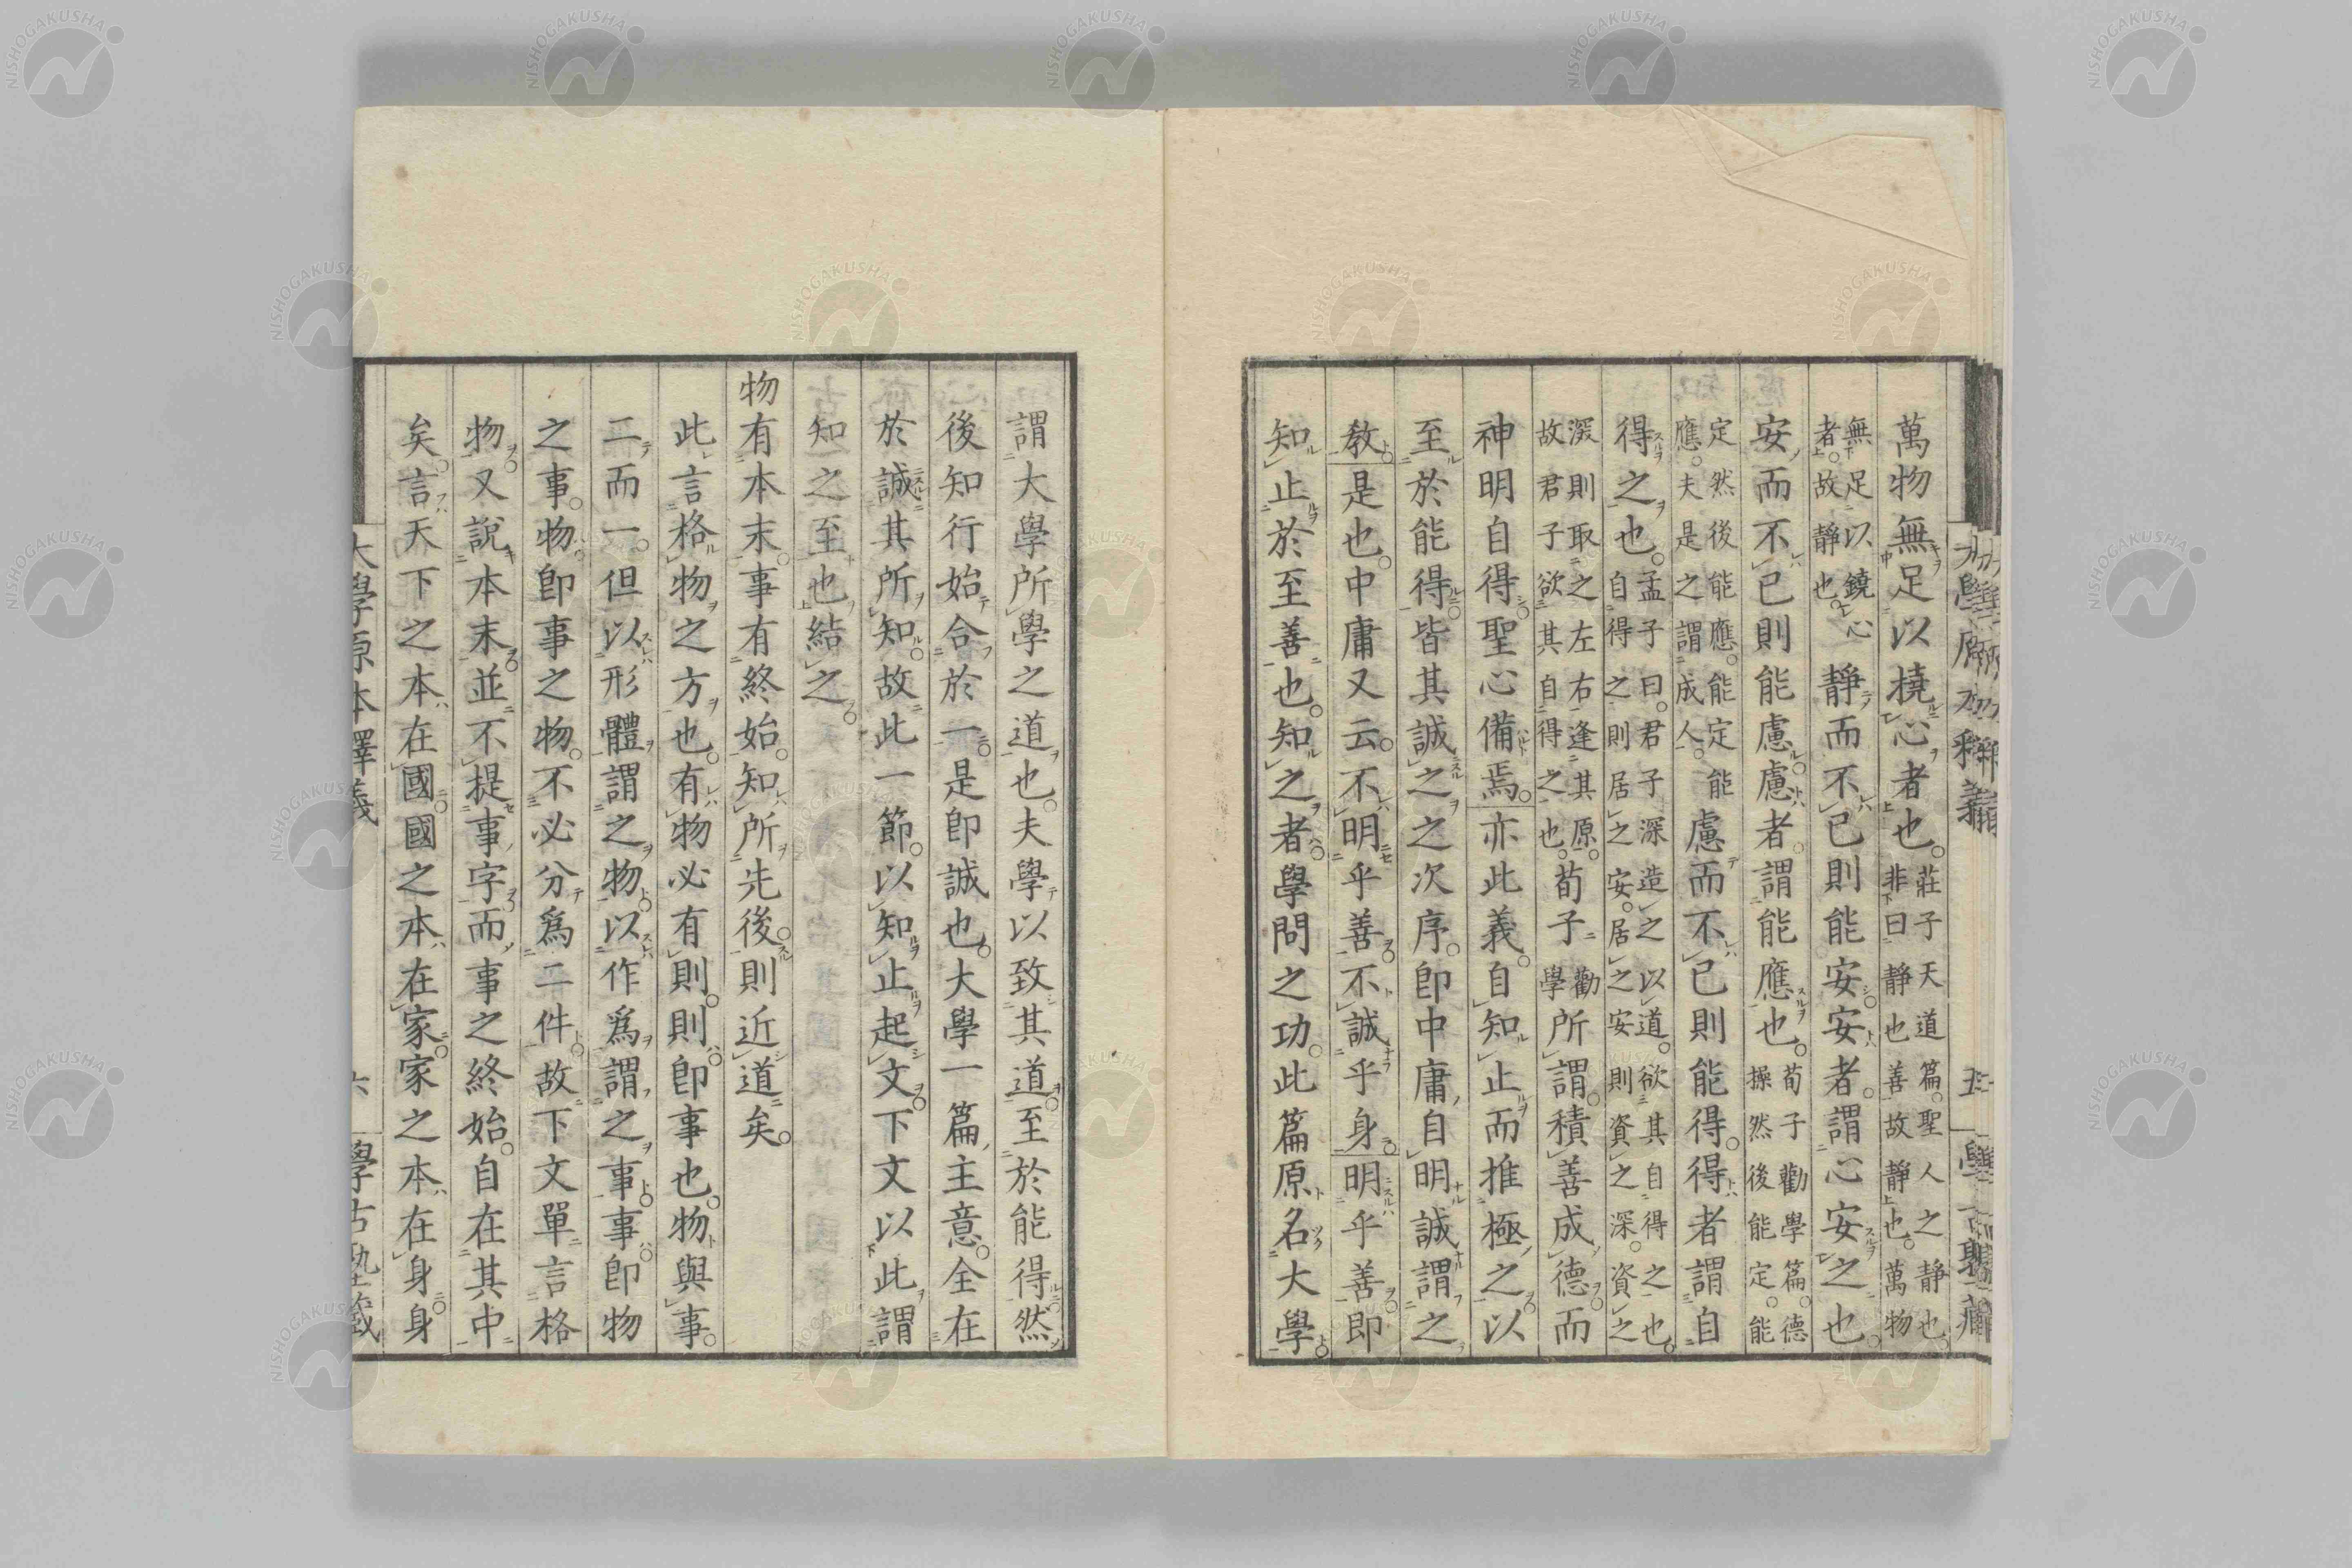 萬物無足以撓心者也。莊子天道篇。聖人之静也。非曰静也善故静也。萬物
無足以鐃心者。故静也。静而不已則能安安者。謂心安之也
安而不已則能慮慮者。謂能應也。荀子勸學篇。德操然後能定。能
定然後能應。能定能應。夫是之謂成人。慮而不已則能得。得者謂自
得之也。孟子曰。君子深造之以道。欲其自得之也。自得之則居之安。居之安則資之深。資之
深則取之左右逢其原。故君子欲其自得之也。荀子勸學所謂。積善成德而
神明自得。聖心備焉。亦此義。自知止而推極之以
至於能得。皆其誠之之次序。即中庸自明誠謂之
教。是也。中庸又云。不明乎善不誠乎身。明乎善即
知止於至善也。知之者。學問之功。此篇原名大學。
謂大學所學之道也。夫學以致其道。至於能得。然
後知行始合於一。是即誠也。大學一篇主意。全在
於誠其所知。故此一節。以知止起文。下文以此謂
知之至也結之。
物有本末。事有終始。知所先後。則近道矣。
此言格物之方也。有物必有則。則即事也。物與事。
二而一。但以形體謂之物。以作爲謂之事。事即物
之事。物即事之物。不必分爲二件。故下文單言格
物。又說本末。並不提事字而事之終始。自在其中
矣。言天下之本在國。國之本在家。家之本在身。身
大學原本釋義
六
學古塾藏